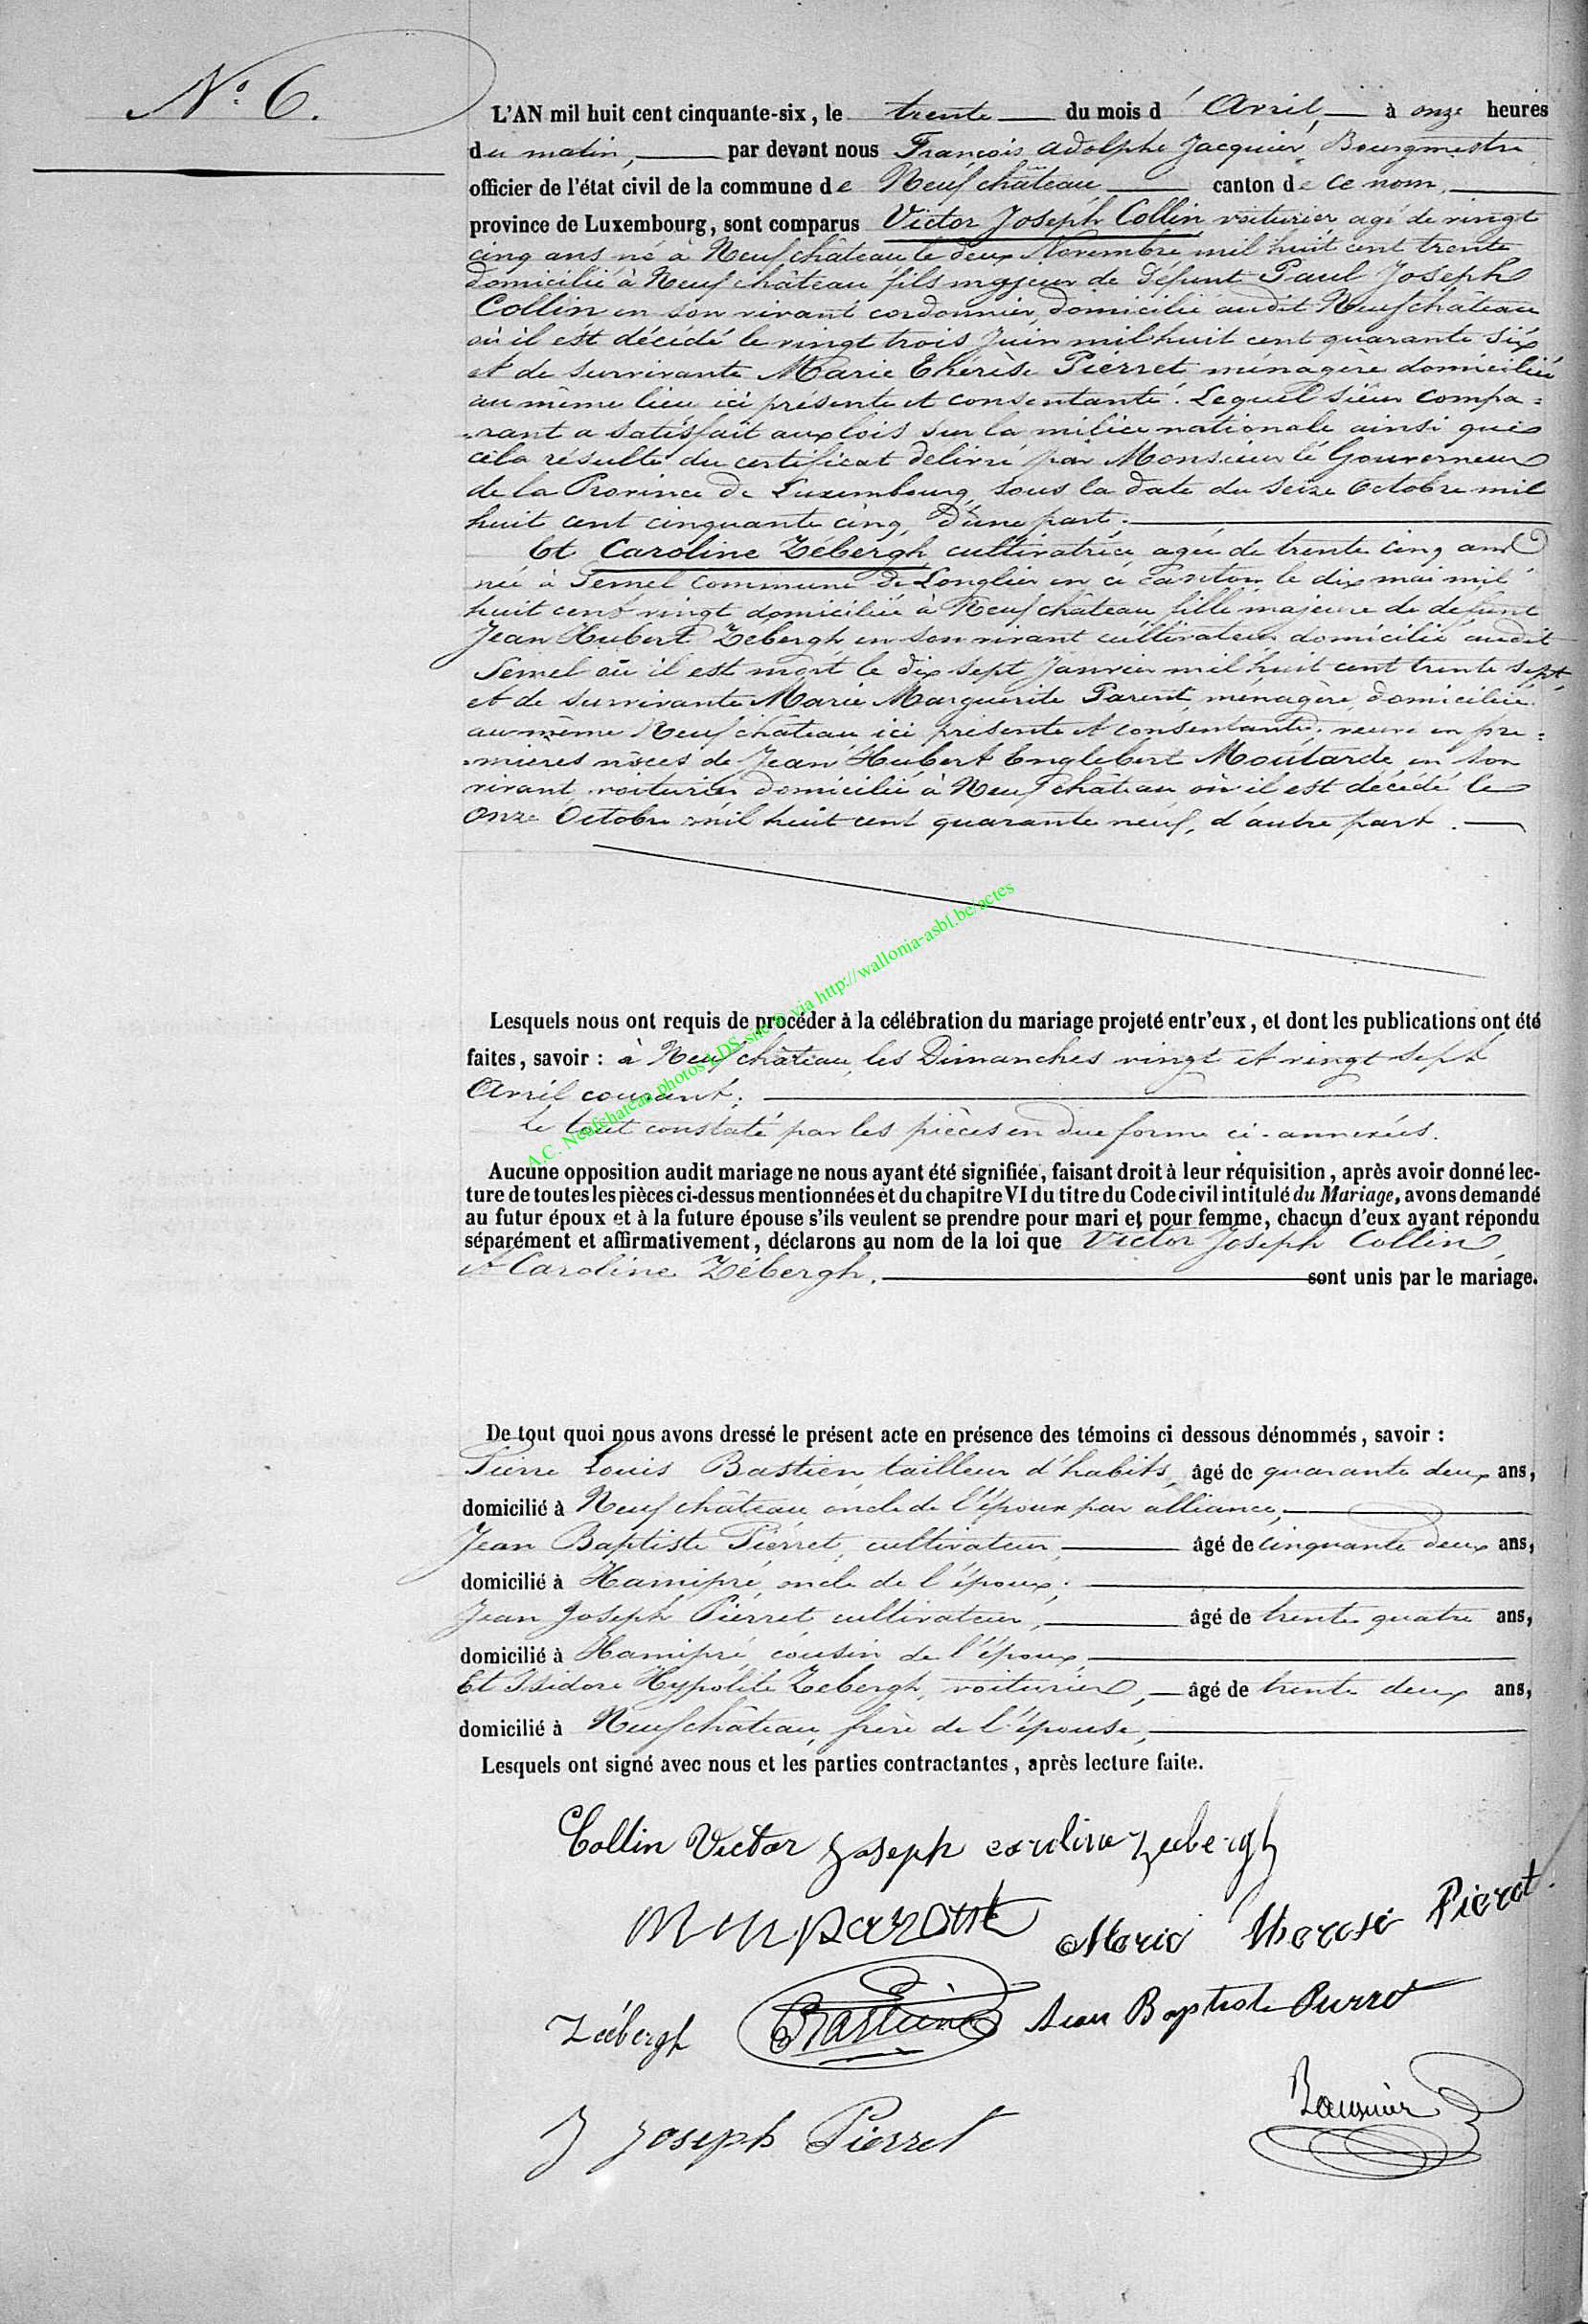 N.° 6.
L'AN mil huit cent cinquante-six, le trente du mois d'Avril, à onze heures
du matin, par devant nous François Adolphe Jacquier, Bourgmestre
officier de l'état civil de la commune de Neufchâteau canton de ce nom,
province de Luxembourg, sont comparus Victor Joseph Collin voiturier, agé de vingt
cinq ans né à Neufchâteau le deux Novembre mil huit cent trente
domicilié à Neufchâteau fils majeur de Défunt Paul Joseph
Collin en son vivant cordonnier, domicilié audit Neufchâteau
où il est décédé le vingt trois Juin mil huit cent quarante six
et de survivante Marie Thérèse Pierret ménagère domiciliée
au même lieu ici présente et consentante. Lequel sieur compa=
=rant a satisfait aux lois sur la milice nationale ainsi que
cela résulte du certificat délivré par Monsieur le Gouverneur
de la Province de Luxembourg, sous la date du seize Octobre mil
huit cent cinquante cinq, d'une part;
Et Caroline Zébergh, cultivatrice, agée de trente cinq ans
née à Semel commune de Longlier en ce canton le dix mai mil
huit cent vingt domiciliée à Neufchâteau fille majeure de défunt
Jean Hubert Zebergh en son vivant cultivateur domicilié audit
Semel où il est mort le dix sept Janvier mil huit cent trente sept,
et de survivante Marie Marguerite Parent, ménagère, domiciliée
au même Neufchâteau, ici présente et consentante, veuve en pre=
=mières nôces de Jean Hubert Englebert Moutarde, en son
vivant voiturier domicilié à Neufchâteau où il est décédé le
onze Octobre mil huit cent quarante neuf, d'autre part.
A.C. Neufchateau photos LDS-site © via http://wallonia-asbl.be/actes
Lesquels nous ont requis de procéder à la célébration du mariage projeté entr'eux, et dont les publications ont été
faites, savoir : à Neufchâteau, les Dimanches vingt et vingt sept
Avril courant;
Le tout constaté par les pièces en due forme ci-annexées.
Aucune opposition audit mariage ne nous ayant été signifiée, faisant droit à leur réquisition, après avoir donné lec-
ture de toutes les pièces ci-dessus mentionnées et du chapitre VI du titre du Code civil intitulé du Mariage, avons demandé
au futur époux et à la future épouse s'ils veulent se prendre pour mari et pour femme, chacun d'eux ayant répondu
séparément et affirmativement, déclarons au nom de la loi que Victor Joseph Collin
et Caroline Zébergh. sont unis par le mariage.
De tout quoi nous avons dressé le présent acte en présence des témoins ci dessous dénommés, savoir :
Pierre Louis Bastien, tailleur d'habits, âgé de quarante deux ans,
domicilié à Neufchâteau, oncle de l'époux par alliance,
Jean Baptiste Pierret, cultivateur, âgé de cinquante deux ans,
domicilié à Hamipré, oncle de l'époux;
Jean Joseph Pierret cultivateur, âgé de trente quatre ans,
domicilié à Hamipré, cousin de l'époux,
Et Isidore Hypolite Zebergh, voiturier, âgé de trente deux ans,
domicilié à Neufchâteau, frère de l'épouse,
Lesquels ont signé avec nous et les parties contractantes, après lecture faite.
Collin Victor Joseph caroline zeebergh
M M parent Marie Therese Pierot.
Zéebergh Bastien Jean Baptiste Pierret
J Joseph Pierret Jacquier